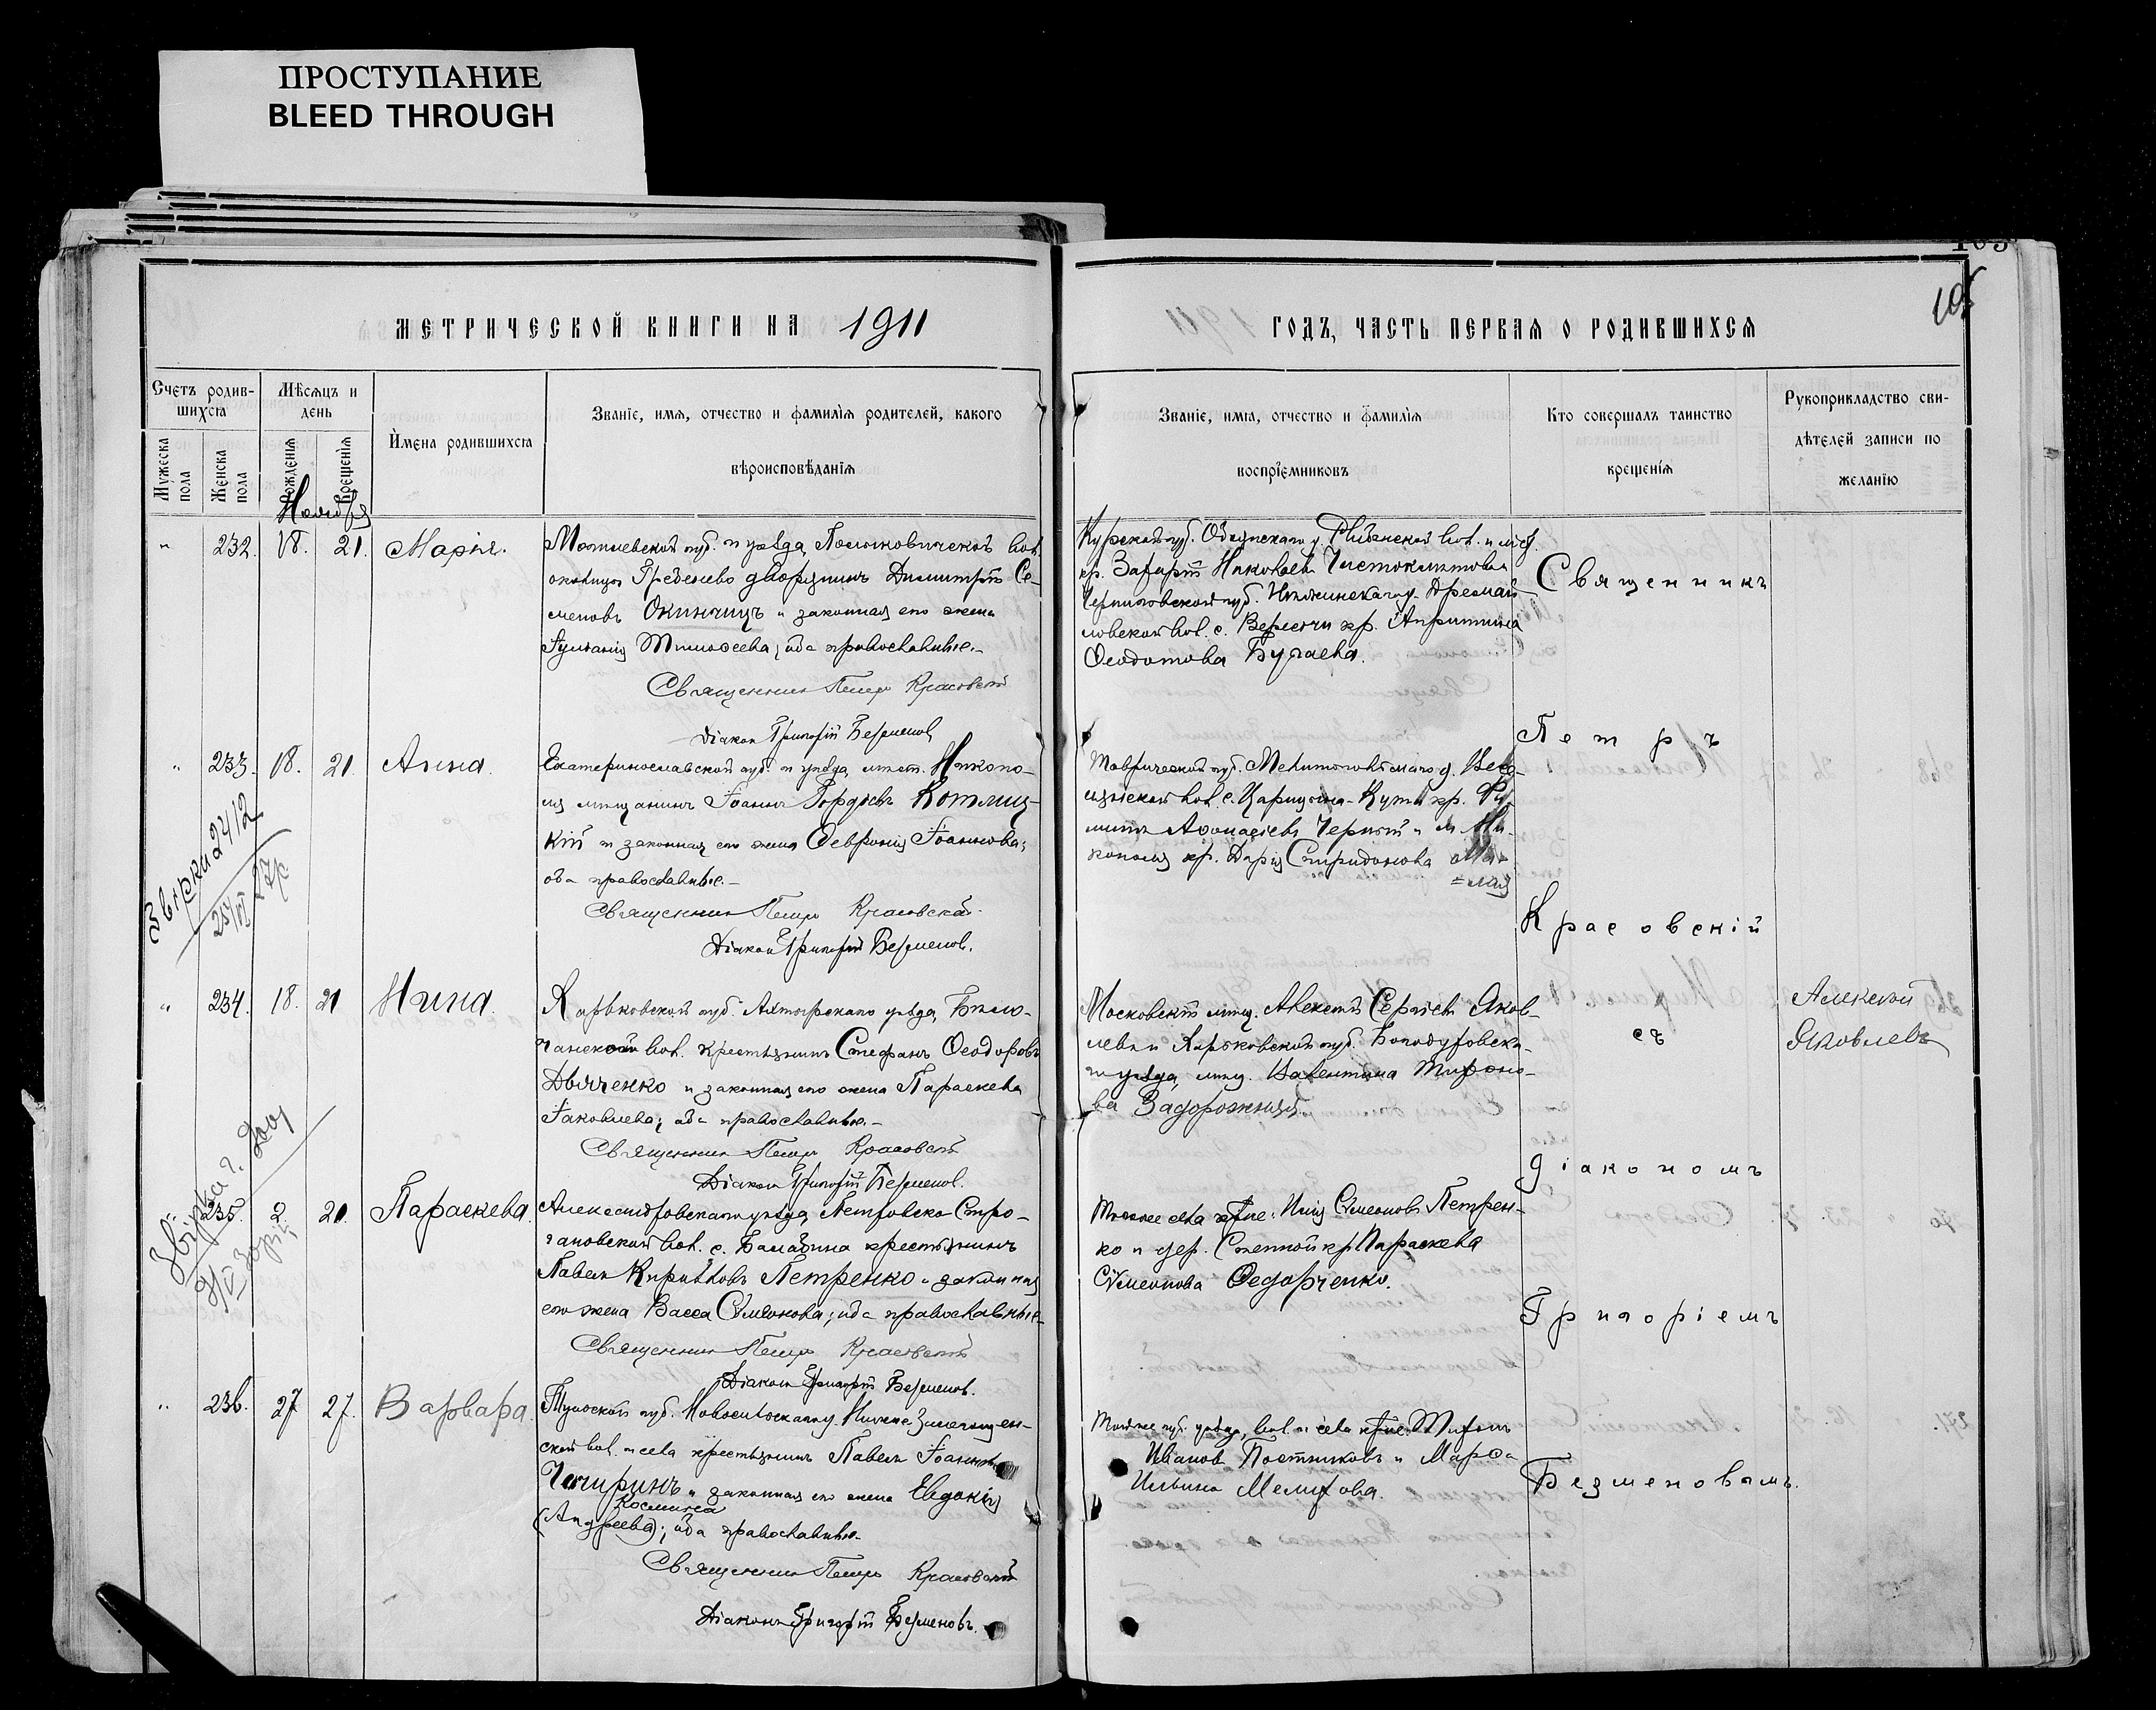 ПРОСТУПАНИЕ
BLEED THROUGH
105
МЕТРИЧЕСКОЙ КНИГИ НА 1911
ГОДЪ, ЧАСТЬ ПЕРВАЯ О РОДИВШИХСЯ
Счетъ родив-
шихся
Мужеска пола
Женска пола
Мѣсяцъ и
день
Рожденія
Крещенія
Имена родившихся
Званіе, имя, отчество и фамилія родителей, какого
вѣроисповѣданія
Званіе, имя, отчество и фамилія
воспріемниковъ
Кто совершалъ таинство
крещенія
Рукоприкладство сви-
дѣтелей записи по
желанію
Ноября
" 232. 18. 21. Марія.
Могилевской губ. и уѣзда, Полыковичской вол.
околицы Гребенево дворянинъ Димитрій Се-
меновъ Окинчицъ и законная его жена
Іуліанія Тимоѳеева; оба православные.-
Священникъ Петръ Красовскій
Діаконъ Григорій Безменовъ
Курской губ. Обоянскаго у. Рыбинской вол. и слоб.
кр. Николаевъ
Черниговской губ. Нѣжинскаго у. Дремай-
ловской вол. с. Вересочи кр.
Ѳеодотова
" 233. 18. 21. Анна.
Екатеринославской губ. и уѣзда, мѣст. Никопо-
ля мѣщанинъ Іоаннъ Гордѣевъ Котляц-
кій и законная его жена Ѳевронія Іоаннова;
оба православные.-
Священникъ Петръ Красовскій
Діаконъ Григорій Безменовъ.
Таврической губ. Мелитопольскаго у.
вол. с. Царицына-Кута кр.
Аѳанасіевъ Черный и м. Ни-
кополя кр. Дарія Спиридонова
" 234. 18. 21 Нина.
Харьковской губ. Ахтырскаго уѣзда, Бѣло-
вол. крестьянинъ Стефанъ Ѳеодоровъ
Дьяченко и законная его жена Параскева
Іаковлева; оба православные.-
Священникъ Петръ Красовскій
Діаконъ Григорій Безменовъ.
Московскій мѣщ. Алексѣй Сергіевъ Яков-
левъ и Харьковской губ. Богодуховска-
го уѣзда, мѣщ. Валентина Миѳоно-
ва Задорожная.
Алексѣй
Яковлевъ
" 235. 2. 20. Параскева.
Александровскаго уѣзда, Петровско-
вол. с. Балабина крестьянинъ
Павелъ Кирилловъ Петренко и законная
его жена Васса Симеонова; оба православные.-
Священникъ Петръ Красовскій
Діаконъ Григорій Безменовъ.
Того же села кр-не: Илія Симеоновъ Петрен-
ко и дер. Степной кр. Параскева
Симеонова Ѳедорченко.
" 236. 27 27. Варвара.
Тульской губ. Новосильскаго у.
вол. и села крестьянинъ Павелъ Іоанновъ
Чигиринъ и законная его жена Евдокія
Космина
(Андреева); оба православные.-
Священникъ Петръ Красовскій
Діаконъ Григорій Безменовъ.
Той же губ. уѣзда, вол. и села кр-не:
Ивановъ Постниковъ и Марѳа
Ильина Мелихова.
Священникъ
Петръ
Красовскій
съ
діакономъ
Григоріемъ
Безменовымъ.